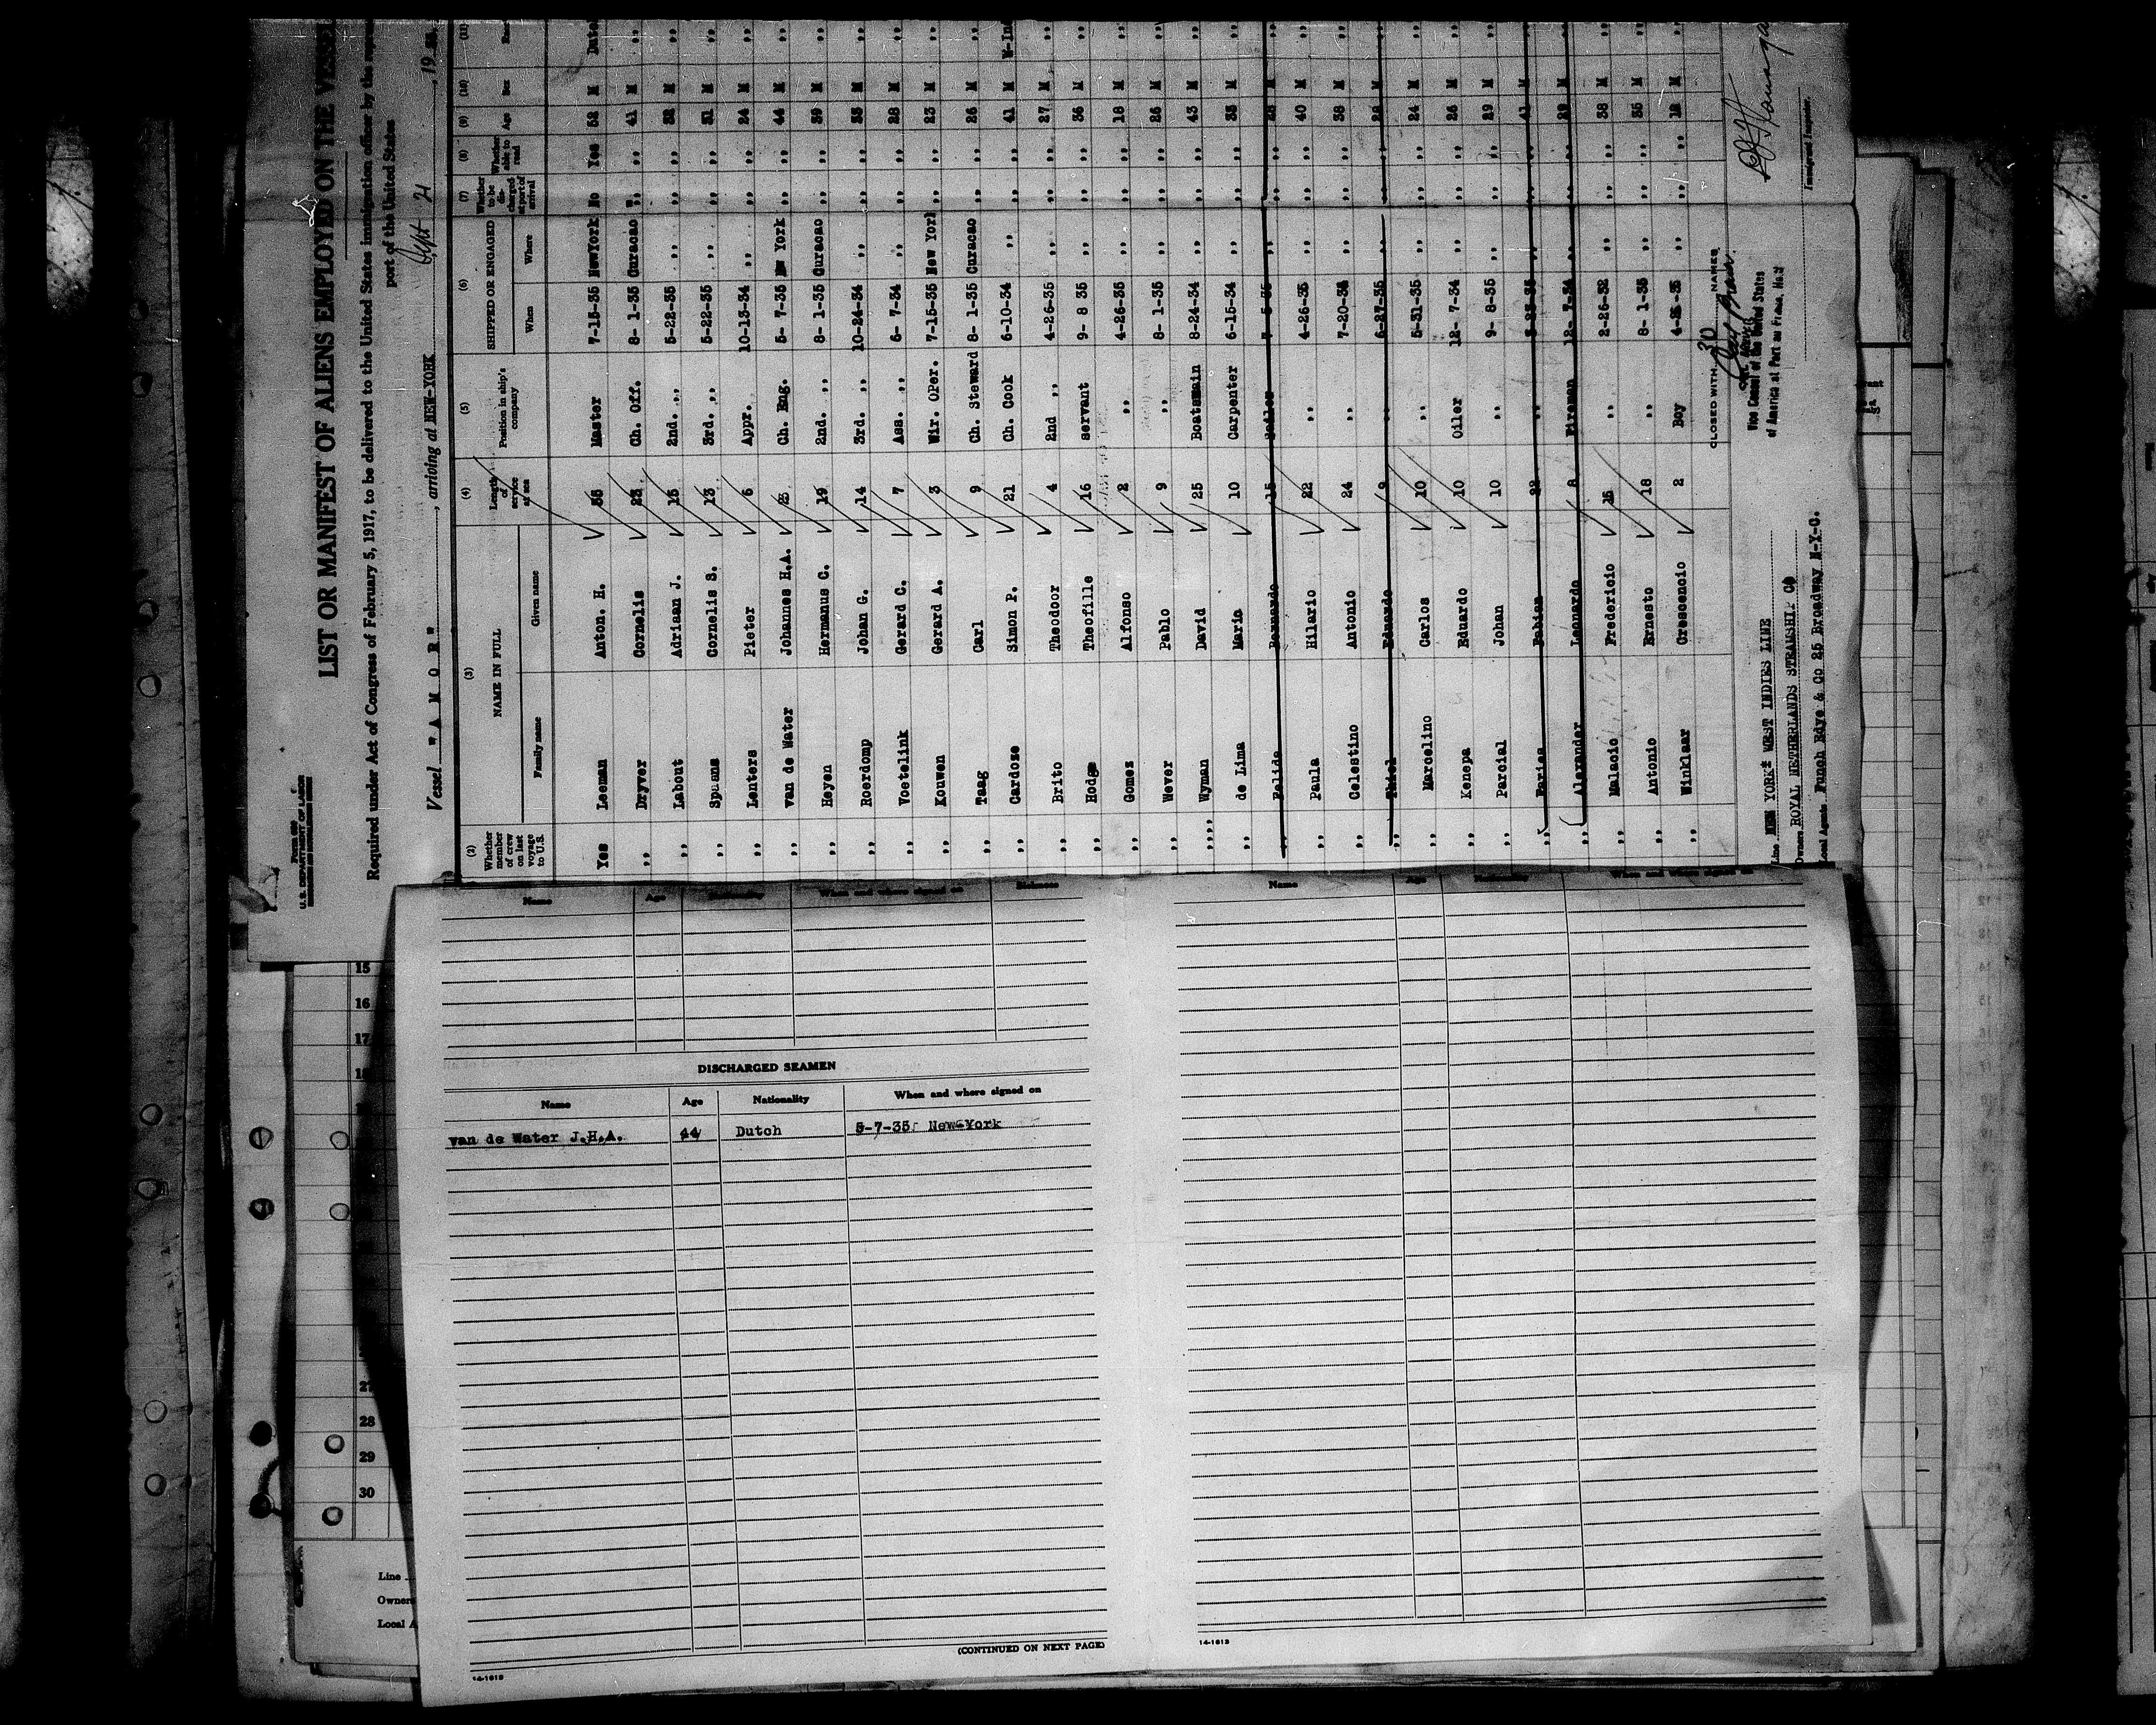 Form 680
U.S. DEPARTMENT OF LABOR
LIST OR MANIFEST OF ALIENS EMPLOYED ON THE VESSE
Required under Act of Congress of February 5, 1917, to be delivered to the United States immigration officer by the
port of the United States
Vessel "W A M O R", arriving at NEW-YORK, Sept 24, 19
(2) (3) (4) (5) (6) (7) (8) (9) (10) (11)
Whether member of crew on last voyage to U.S. NAME IN FULL Family name Given name Length of service at sea Position in ship's company SHIPPED OR ENGAGED When Where Whether to be discharged at port of arrival Whether able to read Age Sex
Yes Leeman Anton. H. 35 Master 7-15-35 NewYork No Yes 52 M
,, Dryver Cornelis 23 Ch. Off. 8- 1-35 Curacao ,, ,, 41 M ,,
,, Labout Adrian J. 15 2nd. ,, 5-22-35 ,, ,, ,, 32 M ,,
,, Spaans Cornelis S. 13 3rd. ,, 5-22-35 ,, ,, ,, 31 M ,,
,, Lenters Pieter 6 Appr. 10-13-34 ,, ,, ,, 24 M ,,
,, van de Water Johannes H.A. 23 Ch. Eng. 5- 7-35 New York ,, ,, 44 M ,,
,, Heyen Hermanus C. 19 2nd. ,, 8- 1-35 Curacao ,, ,, 39 M ,,
,, Roerdomp Johan G. 14 3rd. ,, 10-24-34 ,, ,, ,, 35 M ,,
,, Voetelink Gerard C. 7 Ass. ,, 6- 7-34 ,, ,, ,, 28 M ,,
,, Kouwen Gerard A. 3 Wir. OPer. 7-15-35 New York ,, ,, 23 M ,,
,, Taag Carl 9 Ch. Steward 8- 1-35 Curacao ,, ,, 26 M ,,
,, Cardoze Simon P. 21 Ch. Cook 6-10-34 ,, ,, ,, 41 M W-Ind
,, Brito Theodoor 4 2nd ,, 4-26-35 ,, ,, ,, 27 M ,,
,, Hodge Theofille 16 servant 9- 8 35 ,, ,, ,, 36 M ,,
,, Gomez Alfonso 2 ,, 4-26-35 ,, ,, ,, 18 M ,,
,, Wever Pablo 9 ,, 8- 1-35 ,, ,, ,, 26 M ,,
,,,, Wyman David 25 Boatsmain 8-24-34 ,, ,, ,, 43 M ,,
,, de Lima Mario 10 Carpenter 6-15-34 ,, ,, ,, 35 M ,,
,, Bernardo 15 Sailor 7- 5-35 ,, ,, ,, M ,,
,, Paula Hilario 22 ,, 4-26-35 ,, ,, ,, 40 M ,,
,, Celestino Antonio 24 ,, 7-20-34 ,, ,, ,, 38 M ,,
,, Thiel Eduardo 9 ,, 6-27-35 ,, ,, ,, 28 M ,,
,, Marcelino Carlos 10 ,, 5-31-35 ,, ,, ,, 24 M ,,
,, Kenepa Eduardo 10 Oiler 12- 7-34 ,, ,, ,, 26 M ,,
,, Parcial Johan 10 ,, 9- 8-35 ,, ,, ,, 29 M ,,
,, Fabian 22 ,, ,, ,, ,, 41 M ,,
,, Alexander Leonardo 8 Fireman 12- 7-34 ,, ,, ,, 29 M ,,
,, Malacio Fredericio 15 ,, 2-26-32 ,, ,, ,, 38 M ,,
,, Antonio Ernesto 18 ,, 8- 1-35 ,, ,, ,, 35 M ,,
,, Winklaar Crescencio 2 Boy ,, ,, ,, M ,,
CLOSED WITH 30 NAMES
Vice Consul of the United States
of America at Port au Prince, Haiti
Immigrant Inspector.
Line NEW YORK WEST INDIES LINE
Owners ROYAL NETHERLANDS STEAMSHIP Co
Local Agents Funch Edye & Co 25 Broadway N-Y-C.
Name Age Nationality When and where signed on Sickness
DISCHARGED SEAMEN
Name Age Nationality When and where signed on
van de Water J.H.A. 44 Dutch 5-7-35 New-York
(CONTINUED ON NEXT PAGE)
14-1613
Name Age Nationality When and where signed on
14-1613
15
16
17
28
29
30
Line
Owners
Local A